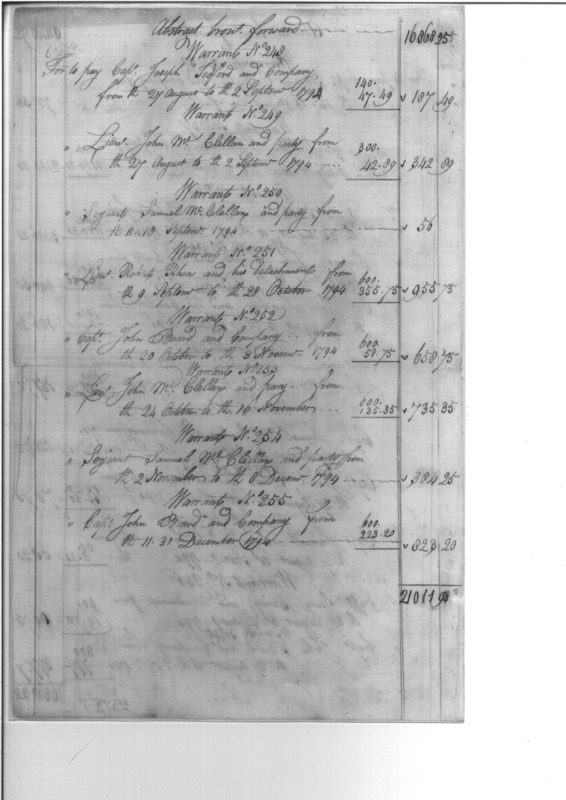 Abstract brout forward 16868 25
Warrant No. 248
For to pay Capt. Joseph Tedford and Company
140.
from the 27 August to the 2 Septemr 1794 47.49 187 49
Warrant No. 249
" Lieut. John McClellan and party from
300.
the 27 August to the 2 Septemr 1794 42.89 342 89
Warrant No. 250
" Serjant Samuel McClellan and party from
the 11-18 Septemr 1794 56
Warrant No. 251
" Lieut. Robert Rhea and his detachment from
600.
the 9 Septemr to the 28 October 1794 355.75 955 75
Warrant No. 252
" Capt. John Beard and Company .. from
600.
the 20 October to the 3 Novemr 1794 58.75 658 75
Warrant No. 253
" Lieut. John McClellan and party .. from
600.
the 24 October to the 16 November ... 135.35 735 35
Warrant No. 254
" Serjant Samuel McClellan and party from
the 2 November to the 8 Decemr 1794 384 25
Warrant No. 255
" Capt. John Beard and Company from
600.
the 11-31 December 1794 223.20 823 20
21011 93